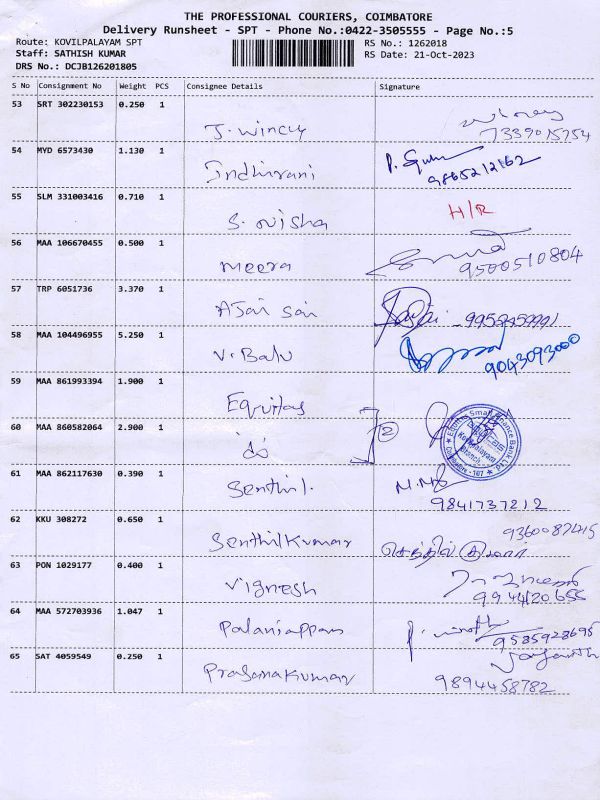 THE PROFESSIONAL COURIERS, COIMBATORE
Delivery Runsheet - SPT - Phone No.:0422-3505555 - Page No.:5
Route: KOVILPALAYAM SPT
RS No.: 1262018
Staff: SATHISH KUMAR
RS Date: 21-Oct-2023
DRS No.: DCJB126201805
S No Consignment No Weight PCS Consignee Details Signature
53 SRT 302230153 0.250 1
J. Wincy
7339015754
54 MYD 6573430 1.130 1
Indhirani
9865212162
55 SLM 331003416 0.710 1
S. Nisha H/R
56 MAA 106670455 0.500 1
Meera 9500510804
57 TRP 6051736 3.370 1
AJai Sai
58 MAA 104496955 5.250 1
V. Balu 9043093000
59 MAA 861993394 1.900 1
Equitas
60 MAA 860582064 2.900 1
do ] 2
Equitas Small Finance Bank Ltd
Kovilpalayam
Branch
61 MAA 862117630 0.390 1
Senthil.
9841737212
62 KKU 308272 0.650 1
9360087415
SenthilKumar செந்தில் குமார்
63 PON 1029177 0.400 1
Vignesh
9944120655
64 MAA 572703936 1.047 1
Palaniappan P. Vinoth
9585928695
65 SAT 4059549 0.250 1
Jayanth
PrasanaKumar 9894458782